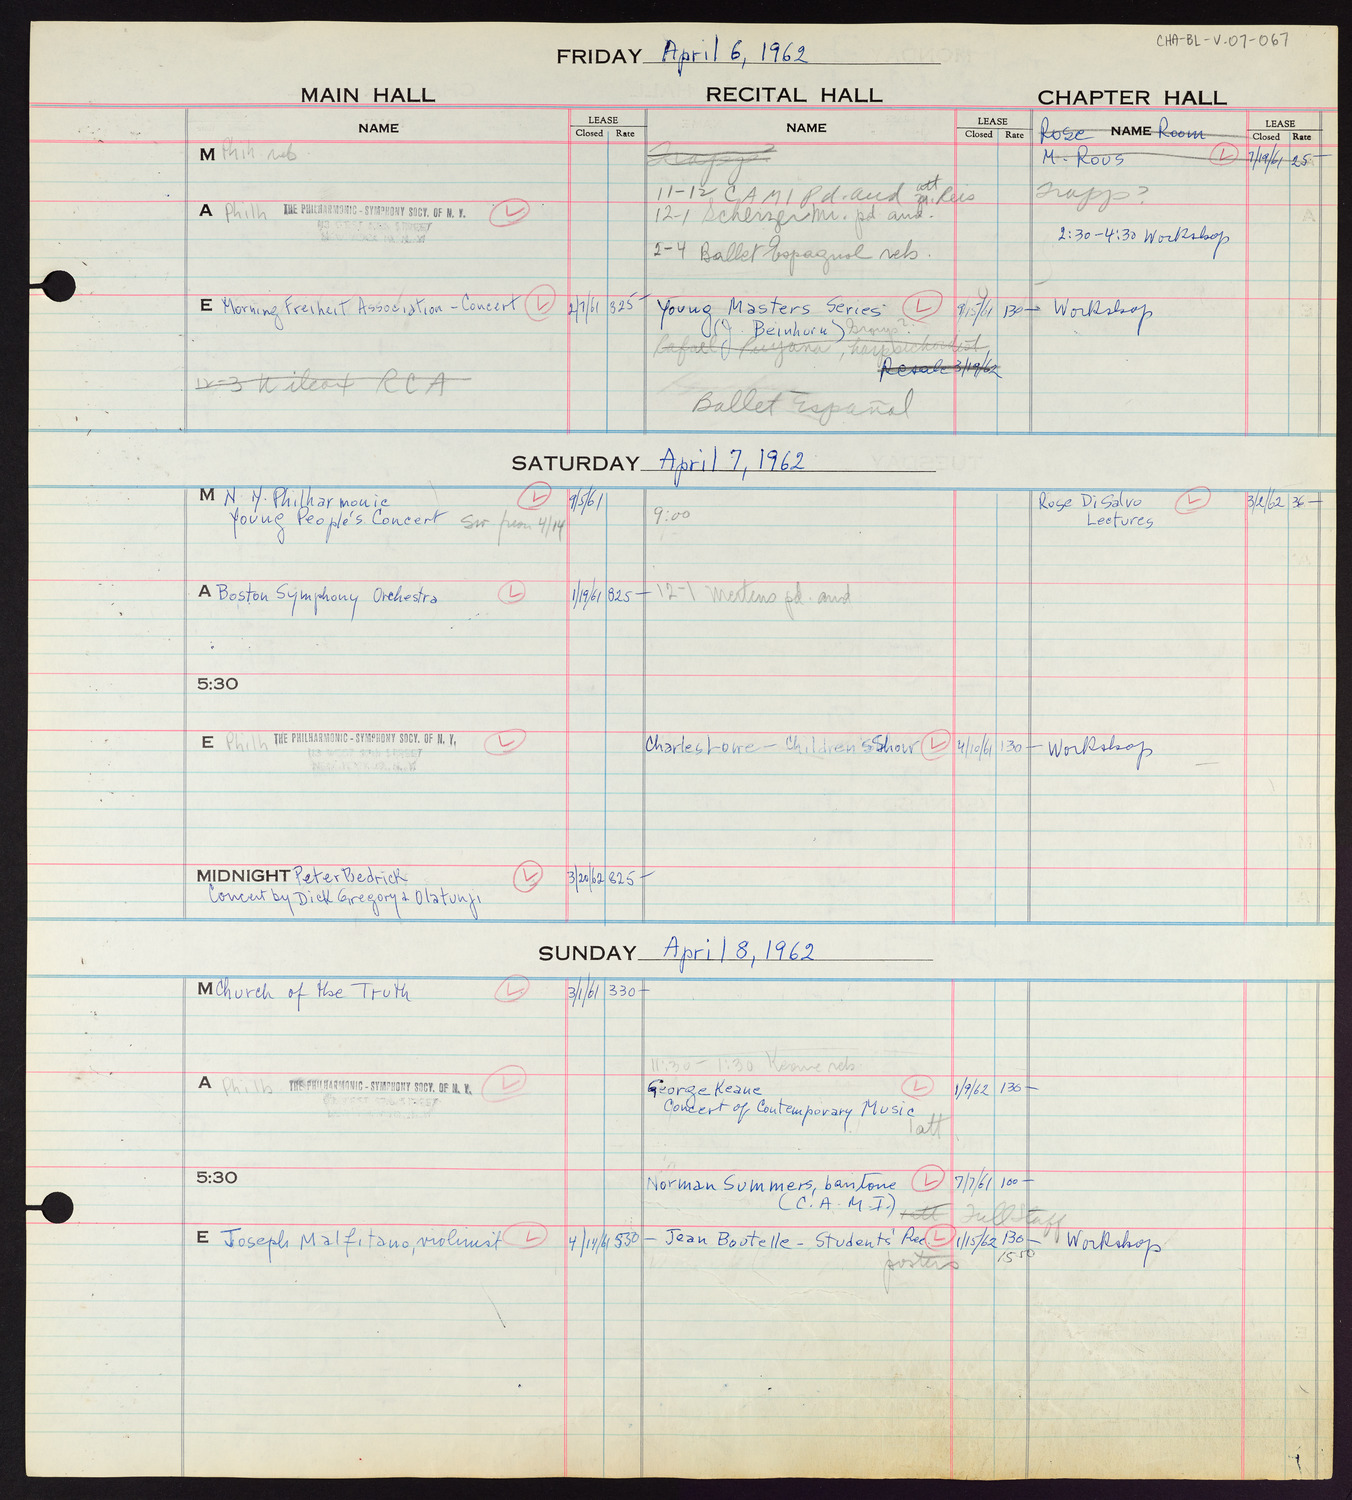 CHA-BL-V.07-067
FRIDAY April 6, 1962
MAIN HALL RECITAL HALL CHAPTER HALL
NAME LEASE Closed Rate NAME LEASE Closed Rate Rose NAME Room LEASE Closed Rate
M Phil. reh
M. Rous L 7/19/61 25-
11-12 CAMI Pd. aud att
Trapp?
A Philh THE PHILHARMONIC-SYMPHONY SOCY. OF N. Y. L
12-1 Scherzer Mr. pd aud.
2:30-4:30 Workshop
2-4 Ballet Espagnol reh.
E Morning Freiheit Association - Concert L 2/7/61 825-
Young Masters Series L 9/15/61 130-
Workshop
(J. Beinhorn)
Rafael Puyana, harpsichordist
Resale 3/19/62
12-3 Wilcox RCA
Ballet Español
SATURDAY April 7, 1962
M N.Y. Philharmonic L 9/5/61
Young People's Concert from 4/14
9:00
Rose DiSalvo L 3/2/62 36-
Lectures
A Boston Symphony Orchestra L 1/19/61 825-
12-1 Mertens pd. aud
5:30
E Philh THE PHILHARMONIC-SYMPHONY SOCY. OF N. Y. L
Charles Lowe - Children's Show L 4/10/61 130-
Workshop
MIDNIGHT Peter Bedrick L 3/20/62 825-
Concert by Dick Gregory & Olatunji
SUNDAY April 8, 1962
M Church of the Truth L 3/1/61 330-
11:30 - 1:30 Keane reh
A Philh THE PHILHARMONIC-SYMPHONY SOCY. OF N. Y. L
George Keane L 1/9/62 130-
Concert of Contemporary Music
1 att
5:30
Norman Summers, baritone L 7/7/61 100-
(C.A.M.I.) att Full Staff
E Joseph Malfitano, violinist L 4/14/61 550-
Jean Boutelle - Students' Rec. L 1/15/62 130-
Workshop
posters 15 50